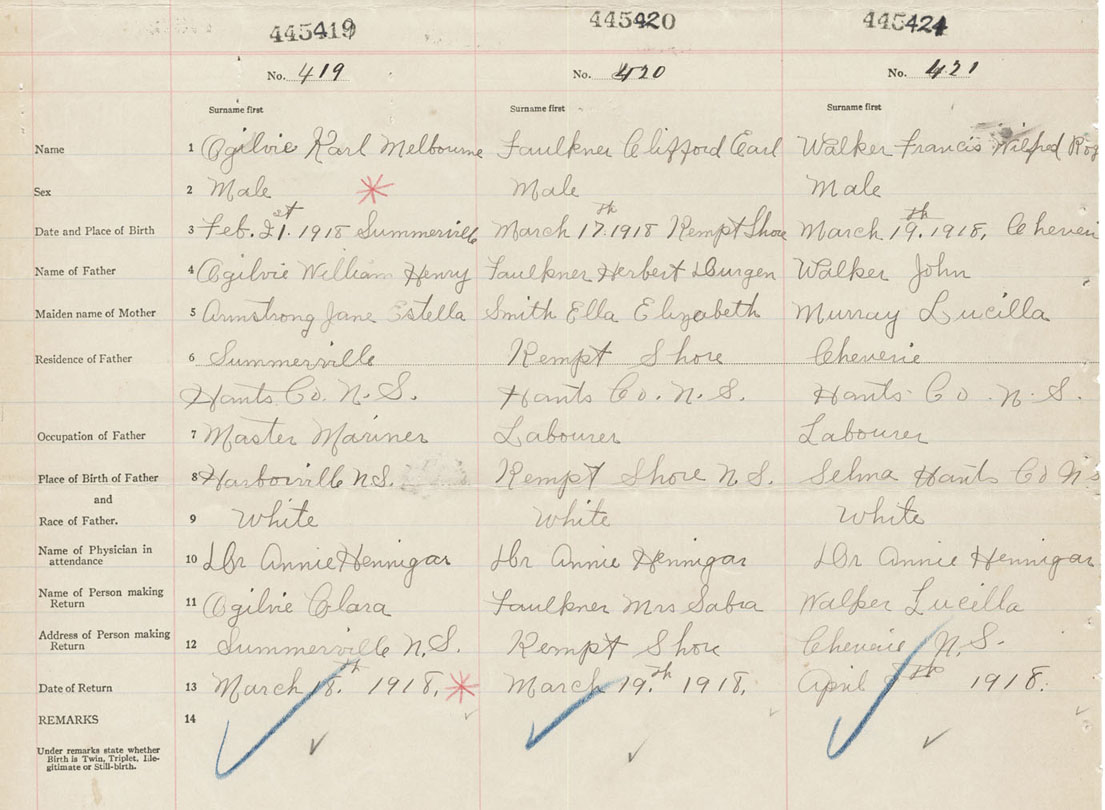 445419 445420 445421
No. 419 No. 420 No. 421
Surname first Surname first Surname first
Name 1 Ogilvie Karl Melbourne Faulkner Clifford Earl Walker Francis Wilfred
Sex 2 Male Male Male
Date and Place of Birth 3 Feb. 21st. 1918 Summerville March 17th. 1918 Kempt Shore March 19th. 1918,
Name of Father 4 Ogilvie William Henry Faulkner Herbert Walker John
Maiden name of Mother 5 Armstrong Jane Estella Smith Ella Elizabeth Murray Lucilla
Residence of Father 6 Summerville Kempt Shore Cheverie
Hants Co. N.S. Hants Co. N.S. Hants Co. N.S.
Occupation of Father 7 Master Mariner Labourer Labourer
Place of Birth of Father 8 Harborville N.S. Kempt Shore N.S. Selma Hants Co N.S
and
Race of Father. 9 White White White
Name of Physician in attendance 10 Dr Annie Hennigar Dr Annie Hennigar Dr Annie Hennigar
Name of Person making Return 11 Ogilvie Clara Faulkner Mrs Sabra Walker Lucilla
Address of Person making Return 12 Summerville N.S. Kempt Shore Cheverie N.S.
Date of Return 13 March 18.th 1918, March 19.th 1918, April 1918.
REMARKS 14
Under remarks state whether
Birth is Twin, Triplet, Ille-
gitimate or Still-birth.